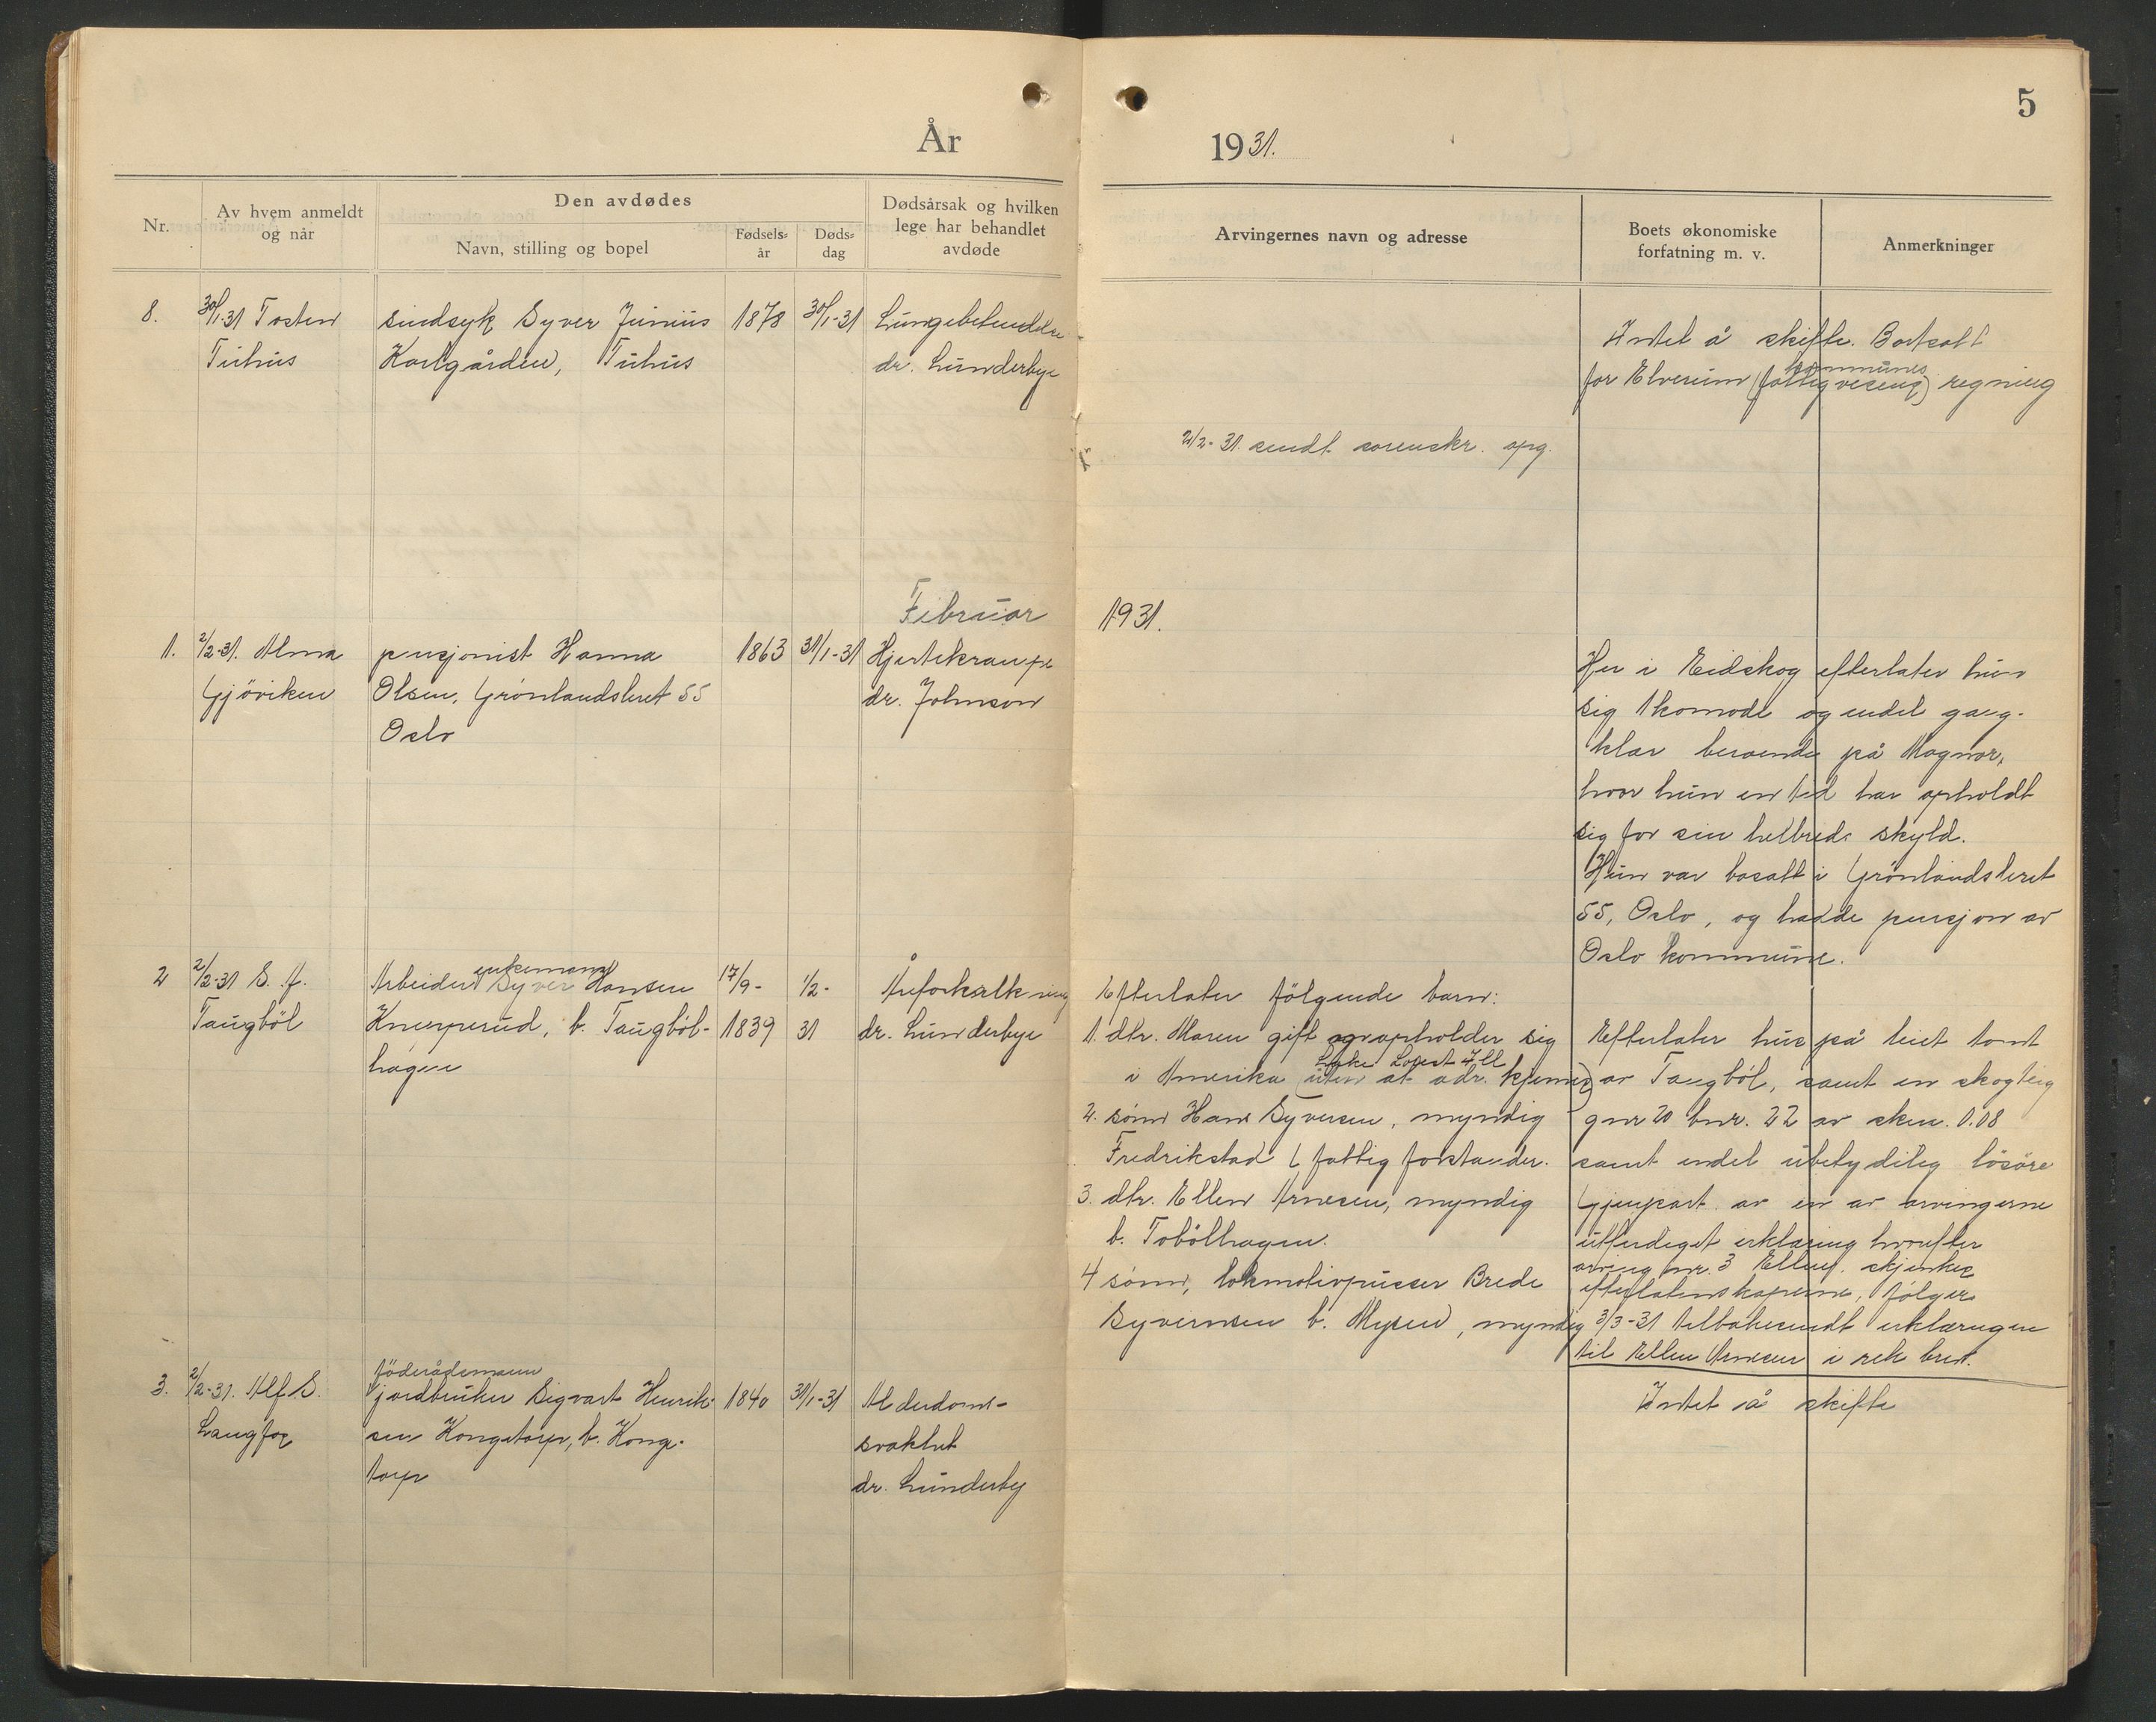 5
År 1931.
Nr.
Av hvem anmeldt
og når
Den avdødes
Navn, stilling og bopel
Fødsels-
år
Døds-
dag
Dødsårsak og hvilken
lege har behandlet
avdøde
Arvingernes navn og adresse
Boets økonomiske
forfatning m. v.
Anmerkninger
8.
30/1-31 Tosten
Tuhus
sindsyk Syver Junius
Karlgården, Tuhus
1878
30/1-31
Lungebetendelse
dr. Lunderbye
2/2-31. sendt sorenskr. opg.
Intet å skifte. Bortsatt
kommunes
for Elverum (fattigvesens) regning
Februar 1931.
1.
2/2-31. Alma
Gjöviken
pensjonist Hanna
Olsen, Grönlandsleret 55
Oslo
1863
31/1-31
Hjertekrampe
dr. Johnson
Her i Eidskog efterlater hun
sig 1 komode og endel gang-
klær beroende på Magnor,
hvor hun en tid har opholdt
sig for sin helbreds skyld.
Hun var bosatt i Grönlandsleret
55, Oslo, og hadde pensjon av
Oslo kommune.
2
2/2-31 S. A.
Taugböl
enkemand
Arbeider Syver Hansen
Knerperud, b. Taugböl-
hagen
17/9-
1839
1/2-
31
Åreforkalkning
dr. Lunderbye
Efterlater fölgende barn:
1. dtr. Maren gift opholder sig
i Amerika (uten at adr. kjennes)
2. sönn Hans Syversen, myndig
Fredrikstad fattigforstander.
3. dtr. Ellen Arnesen, myndig
b. Tobölhagen.
4 sönn, lokmotivpusser Brede
Syvernsen b. Mysen, myndig
Efterlater hus på leiet tomt
av Taugböl, samt en skogteig
gnr 20 bnr. 22 av sken. 0.08
samt endel ubetydelig lösöre
Gjenpart av en av arvingerne
utferdiget erklæring hvorefter
arving nr. 3 Ellen skjenkes
efterlatenskaperne, fölger.
3/3-31 tilbakesendt erklæringen
til Ellen Arnesen i rek brev.
3.
2/2-31. Alf S.
Langfos
föderådsmann
jordbruker Sigvart Henrik-
sen Kongstorp, b. Kongs-
torp
1840
31/1-31
Alderdoms-
svakhet
dr. Lunderby
Intet å skifte